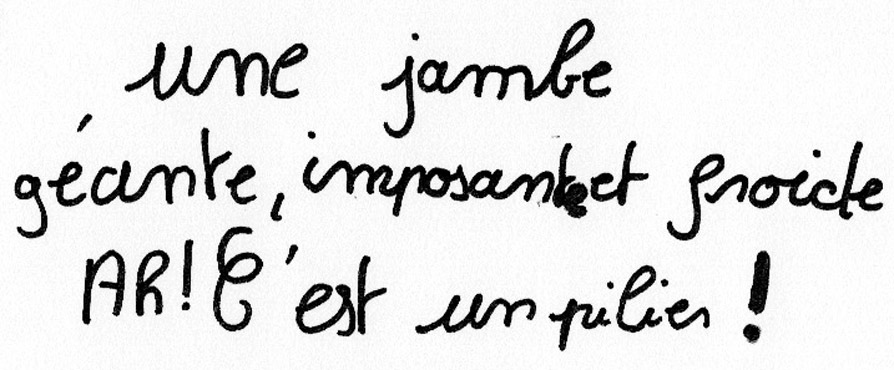 une jambe
géante, imposante et froide
Ah! C'est un pilier !